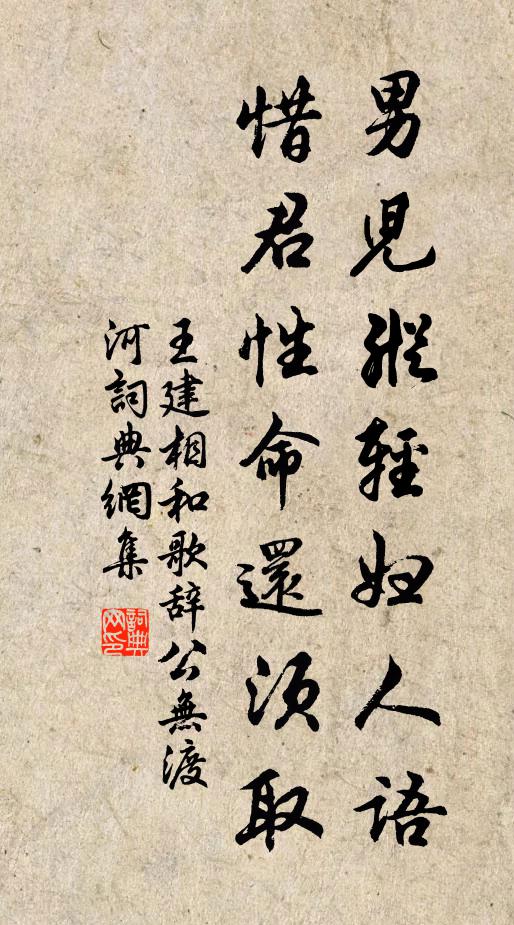 男兒縱輕婦人語
惜君性命還須取
王建相和歌辞公無渡
河詞典網集
詞典
网印